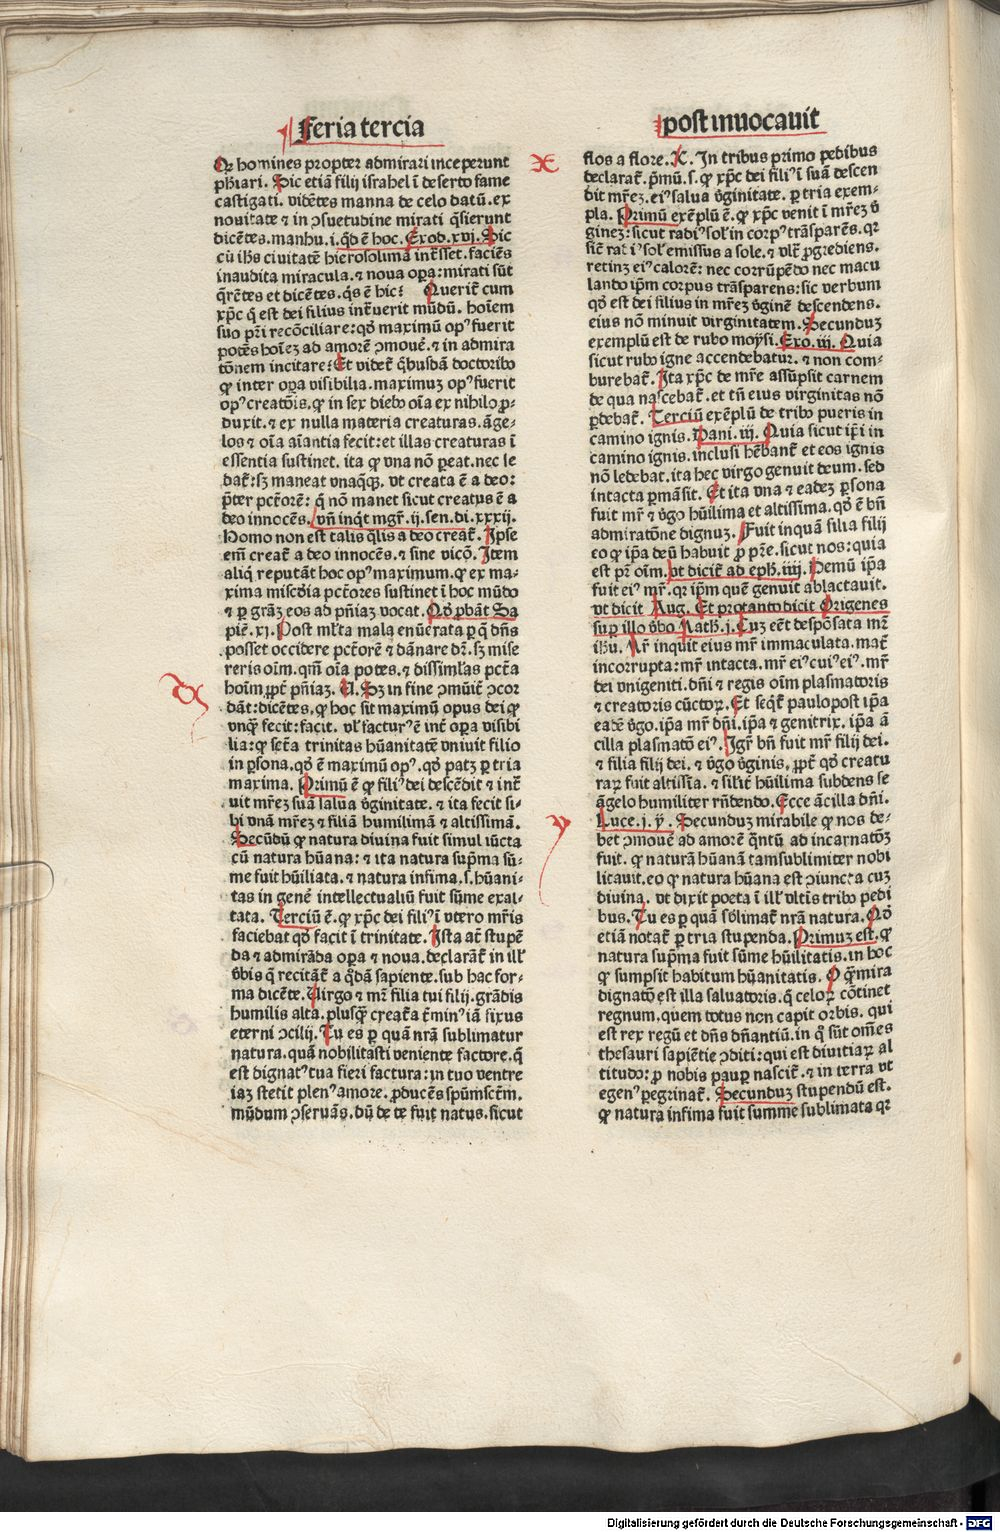 Feria tercia
post inuocauit
Qꝛ homines propter admirari inceperunt
phiari. Sic etiā filij israhel ī deserto fame
castigati. vidētes manna de celo datū. ex
nouitate ⁊ in ꝯsuetudine mirati q̄sierunt
dicētes. manhu. i. qd̄ ē hoc. Exod. xvj. Sic
cū ihs ciuitatē hierosolimā intꝛsset. faciēs
inaudita miracula. ⁊ noua oꝑa: mirati sūt
q̄rētes et dicētes. qͥs ē hic? Querit̄ cum
xp̄c q̄ est dei filius int̄uerit mūdū. hoīem
suo pr̄i recōciliare: qd̓ maximū opꝰ fuerit
potēs hoīeꝫ ad amorē ꝯmouē. ⁊ in admira
tōnem incitare? Et videt̄ qͥbusdā doctoribꝰ
ꝙ inter oꝑa visibilia. maximuꝫ opꝰ fuerit
opꝰ creatōis. ꝙ in sex diebꝰ oīa ex nihilo ꝓ-
duxit. ⁊ ex nulla materia creaturas. āge-
los ⁊ oīa aīantia fecit: et illas creaturas ī
essentia sustinet. ita ꝙ vna nō ꝑeat. nec le
dat̄: sꝫ maneat vnaq̄qꝫ. vt creata ē a deo:
p̄ter pctōrē: q̄ nō manet sicut creatus ē a
deo innocēs. vn̄ inqͥt mgr̄. ij. sen. di. xxxij.
Homo non est talis qͣlis a deo creat̄. Ipse
em̄ creat̄ a deo innocēs. ⁊ sine vicꝭo. Item
aliqͥ reputāt hoc opꝰ maximum. ꝙ ex ma-
xima miscd̓ia pctōres sustinet ī hoc mūdo
⁊ ꝑ grāꝫ eos ad pn̄iaꝫ vocat. Qd̓ ꝓbāt Sa
piē. xj. Post ml̓ta mala enūerata ꝑ q̄ dn̄s
posset occidere pctōrē ⁊ dānare dꝛ. sꝫ mise
reris oīm. qm̄ oīa potes. ⁊ dissiml̓as pctā
hoīm ꝓpt̄ pn̄iaꝫ. V. Sꝫ in fine ꝯmūit̄ ꝯcor
dāt: dicētes. ꝙ hoc sit maximū opus dei ꝙ
vnqͣ fecit: facit. vl̓ facturꝰ ē int̄ oꝑa visibi
lia: ꝙ sctā trinitas hūanitatē vniuit filio
in ꝑsona. qd̓ ē maximū opꝰ. qd̓ patꝫ ꝑ tria
maxima. Primū ē ꝙ filiꝰ dei descēdit ⁊ int̄
uit mr̄eꝫ suā salua v̓ginitate. ⁊ ita fecit si-
bi vnā mr̄eꝫ ⁊ filiā humilimā ⁊ altissimā.
Secūdū ꝙ natura diuina fuit simul iūcta
cū natura hūana: ⁊ ita natura sup̄ma sū-
me fuit hūiliata. ⁊ natura infima. s. hūani-
tas in genē intellectualiū fuit sūme exal-
tata. Terciū ē. ꝙ xp̄c dei filiꝰ ī vtero mr̄is
faciebat qd̓ facit ī trinitate. Ista at̄ stupē
da ⁊ admirāda oꝑa ⁊ noua. declarāt̄ in ill̓
v̓bis q̄ recitāt̄ a qͦdā sapiente. sub hac for-
ma dicēte. Virgo ⁊ mꝛ filia tui filij. grādis
humilis alta. plusqͣ creat̄a t̄minꝰ iā fixus
eterni ꝯcilij. Tu es ꝑ quā nrā sublimatur
natura. quā nobilitasti veniente factore. q̄
est dignatꝰ tua fieri factura: in tuo ventre
iaꝫ stetit plenꝰ amore. ꝓducēs sp̄umsctm̄.
mūdum ꝯseruās. dū de te fuit natus. sicut
flos a flore. X. In tribus primo pedibus
declarat̄. pmū. s. ꝙ xp̄c dei filiꝰ ī suā descen
dit mr̄eꝫ. eiꝰ salua v̓ginitate. ꝑ tria exem-
pla. Primū exēplū ē. ꝙ xp̄c venit ī mr̄eꝫ v̓
gineꝫ: sicut radiꝰ sol̓ in corpꝰ trāsparēs. qꝛ
sic̄ radiꝰ sol̓ emissus a sole. ⁊ vlt̄ ꝓgrediens.
retinꝫ eiꝰ calorē: nec corrūpēdo nec macu
lando ip̄m corpus trāsparens: sic verbum
qd̓ est dei filius in mr̄eꝫ v̓ginē descendens.
eius nō minuit virginitatem. Secunduꝫ
exemplū est de rubo moẏsi. Exo. iij. Quia
sicut rubꝰ igne accendebatur. ⁊ non com-
burebat̄. Ita xp̄c de mr̄e assūpsit carnem
de qua nascebat̄. et tn̄ eius virginitas nō
ꝑdebat̄. Terciū exēplū de tribꝰ pueris in
camino ignis. Dani. iij. Quia sicut ip̄i in
camino ignis. inclusi hēbant̄ et eos ignis
nō ledebat. ita hec virgo genuit deum. sed
intacta ꝑmāsit. Et ita vna ⁊ eadeꝫ ꝑsona
fuit mr̄ ⁊ v̓go hūilima et altissima. qd̓ ē bn̄
admiratōne dignuꝫ. Fuit inquā filia filij
eo ꝙ ip̄a deū habuit ꝓ pr̄e. sicut nos: quia
est pr̄ oīm. vt dicit̄ ad eph. iiij. Demū ip̄a
fuit eiꝰ mr̄. qꝛ ip̄m quē genuit ablactauit.
vt dicit Aug. Et ꝓtanto dicit Origenes
suꝑ illo v̓bo Math. j. Cuꝫ eēt despōsata mꝛ
ihu. Mr̄ inquit eius mr̄ immaculata. mat̄
incorrupta: mr̄ intacta. mr̄ eiꝰ cuiꝰ eiꝰ. mr̄
dei vnigeniti. dn̄i ⁊ regis oīm plasmatoris
⁊ creatoris cūctoꝝ. Et seqͥt̄ paulopost ip̄a
eadē v̓go. ip̄a mr̄ dn̄i. ip̄a ⁊ genitrix. ip̄a ā
cilla plasmatō eiꝰ. Igr̄ bn̄ fuit mr̄ filij dei.
⁊ filia filij dei. ⁊ v̓go v̓ginis. ꝓpt̄ qd̓ creatu
raꝝ fuit altissīa. ⁊ silit̄ hūilima subdens se
āgelo humiliter rn̄dendo. Ecce ācilla dn̄i.
Luce. j. ẏ. Secunduꝫ mirabile ꝙ nos de-
bet ꝯmouē ad amorē qͣntū ad incarnatōꝫ
fuit. ꝙ naturā hūanā tamsublimiter nobi
litauit. eo ꝙ natura hūana est ꝯiuncta cuꝫ
diuina. vt dixit poeta ī ill̓ vltīs tribꝰ pedi
bus. Tu es ꝑ quā sb̓limat̄ nrā natura. Qd̓
etiā notat̄ ꝑ tria stupenda. Primuꝫ est. ꝙ
natura sup̄ma fuit sūme hūilitatis. in hoc
ꝙ sumpsit habitum hūanitatis. O qͣ mira
dignatō est illa saluatoris. q̄ celoꝝ cōtinet
regnum. quem totus non capit orbis. qui
est rex regū et dn̄s dn̄antiū. in qͦ sūt om̄es
thesauri sapiētie ꝯditi: qui est diuitiaꝝ al
titudo: ꝓ nobis pauꝑ nascit̄. ⁊ in terra vt
egenꝰ ꝑegrinat̄. Secunduꝫ stupendū est.
ꝙ natura infima fuit summe sublimata qꝛ
x
y
Digitalisierung gefördert durch die Deutsche Forschungsgemeinschaft - DFG